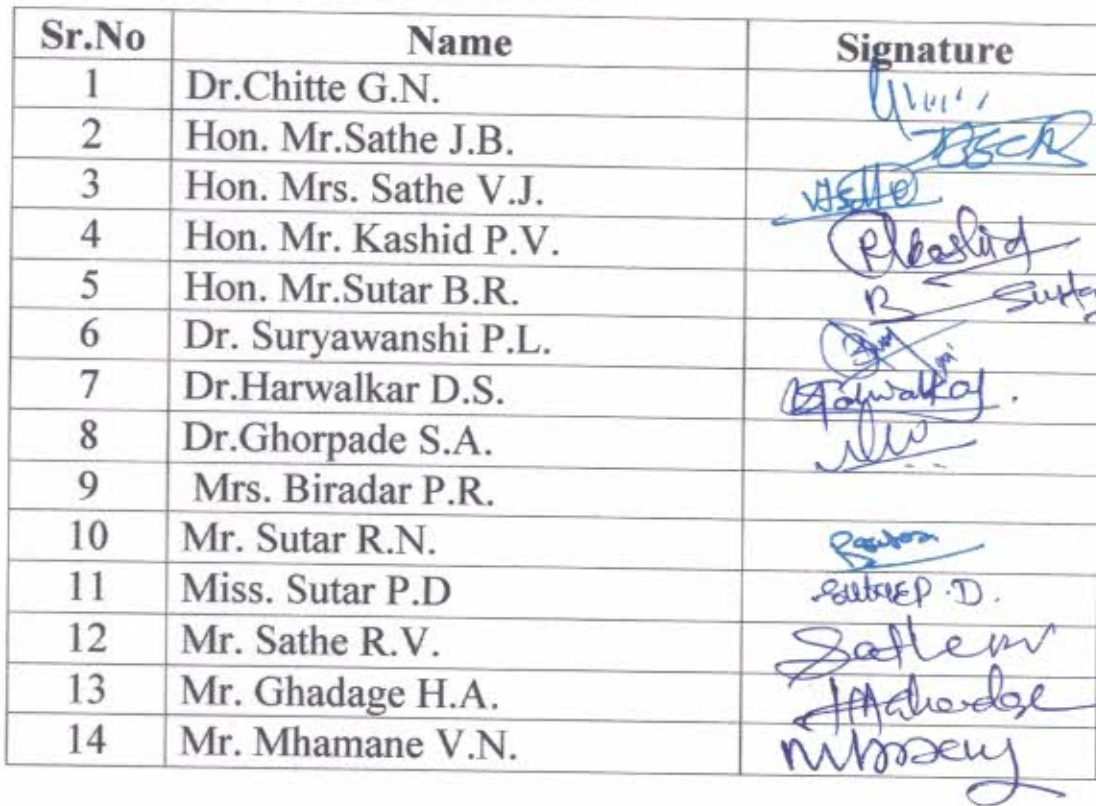 Sr.No Name Signature
1 Dr.Chitte G.N.
2 Hon. Mr.Sathe J.B.
3 Hon. Mrs. Sathe V.J.
4 Hon. Mr. Kashid P.V. PVkashid
5 Hon. Mr.Sutar B.R.
6 Dr. Suryawanshi P.L.
7 Dr.Harwalkar D.S.
8 Dr.Ghorpade S.A.
9 Mrs. Biradar P.R.
10 Mr. Sutar R.N.
11 Miss. Sutar P.D P.D.
12 Mr. Sathe R.V.
13 Mr. Ghadage H.A.
14 Mr. Mhamane V.N.